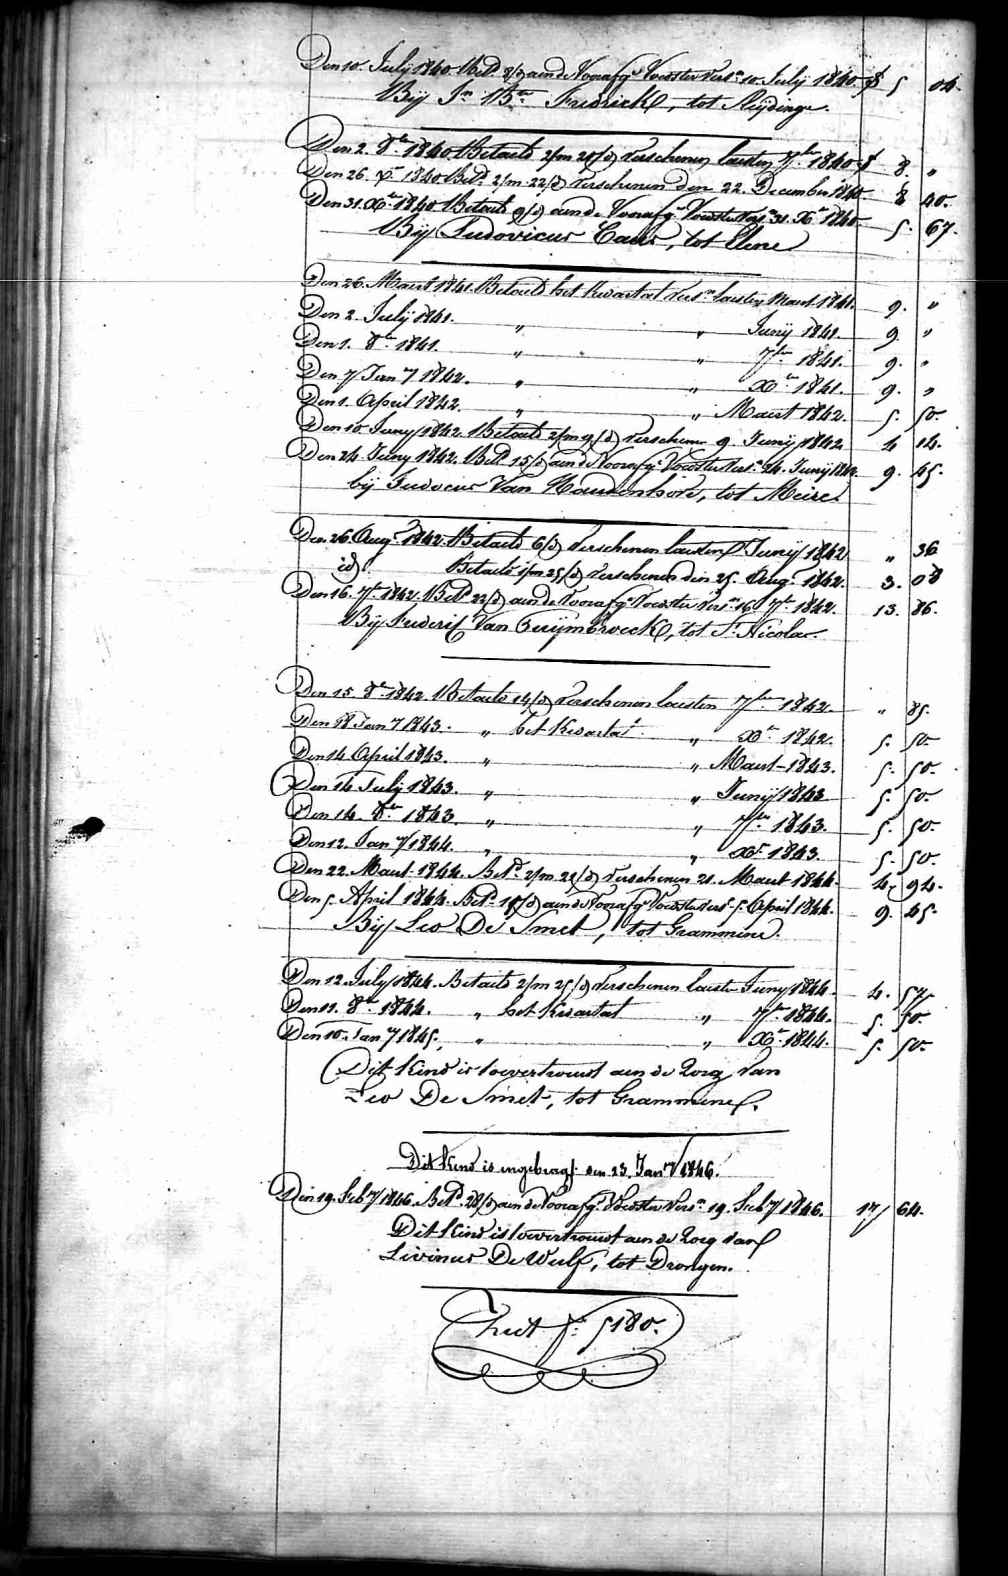 Den 10. July 1840 Bet.d 8/d aen de Voorafg.e Voedster vers.n 10 July 1840 f 5 04.
Bij J.n B.te Fredrick, tot Sleydinge.
Den 2. 8.bre 1840 Betaeld 2/m 20/d verschenen laesten 7.bre 1840 f 8. "
Den 26. X.bre 1840 Bet.d 2/m 22/d verschenen den 22. December 1840 8 40.
Den 31. X.bre 1840 Betaeld 9/d aen de Voorafg.e Voedster vers.n 31. X.bre 1840. 5. 67.
Bij Ludovicus Caus, tot Elene
Den 26. Maert 1841. Betaeld het kwartael vers.n laesten Maert 1841. 9. "
Den 2. July 1841. " " Junij 1841. 9. "
Den 1. 8.bre 1841. " " 7.bre 1841. 9. "
Den 7 Jan.y 1842. " " X.bre 1841. 9. "
Den 1. April 1842. " " Maert 1842. 5. 50.
Den 10. Juny 1842. Betaeld 2/m 9/d verschenen 9. Junij 1842 4 14.
Den 24. Juny 1842. Bet.d 15/d aen de Voorafg.e Voedster vers.n 24. Junij 1842. 9. 45.
bij Judocus Van Hauwenhove, tot Meire.
Den 26 Aug. 1842. Betaeld 6/d verschenen laesten Junij 1842 " 36
id. Betaeld 1/m 25/d verschenen den 25. Aug. 1842. 3. 08
Den 16. 7.bre 1842. Bet.d 22/d aen de Voorafg.e Voedster vers.n 16. 7.bre 1842. 13. 86.
Bij Frederik Van Cuijmbroeck, tot S.t Nicolas.
Den 15. 8.bre 1842. Betaeld 14/d verschenen laesten 7.bre 1842. " 85.
Den 18 Jan.y 1843. " het kwartael " X.bre 1842. 5. 50.
Den 14 April 1843. " " Maert 1843. 5. 50.
Den 14 July 1843. " " Junij 1843 5. 50.
Den 14. 8.bre 1843. " " 7.bre 1843. 5. 50.
Den 12. Jan.y 1844. " " X.bre 1843. 5. 50.
Den 22. Maert 1844. Bet.d 2/m 21/d verschenen 21. Maert 1844. 4. 94.
Den 5. April 1844. Bet.d 15/d aen de Voorafg.e Voedster vers.n 5. April 1844. 9. 45.
Bij Leo De Smet, tot Grammene.
Den 12. July 1844. Betaeld 2/m 25/d verschenen laesten Juny 1844. 4. 57
Den 11. 8.bre 1844. " het kwartael " 7.bre 1844. 5. 50.
Den 10. Jan.y 1845. " " X.bre 1844. 5. 50.
Dit kind is toevertrouwd aen de zorg van
Leo De Smet, tot Grammene.
Dit kind is ingebragt den 23. Jan.y 1846.
Den 19. Feb.y 1846. Bet.d 28/d aen de Voorafg.e Voedster vers.n 19. Feb.y 1846. 17 64.
Dit kind is toevertrouwd aen de zorg van
Livinus De Wulf, tot Drongen.
Ziet f.o 5180.